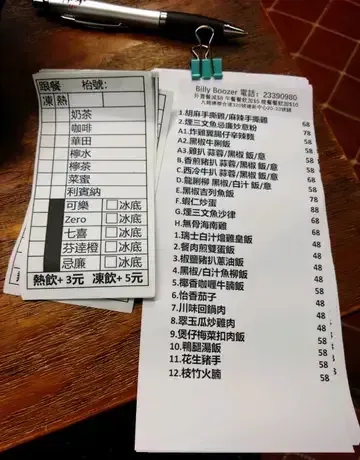 跟餐 枱號:
凍 熱
奶茶
咖啡
華田
檸水
檸茶
菜蜜
利賓納
可樂 冰底
Zero 冰底
七喜 冰底
芬達橙 冰底
忌廉 冰底
熱飲+3元 凍飲+5元
Billy Boozer 電話: 23390980
1.胡麻手撕雞/麻辣手撕雞 68
2.煙三文魚忌廉炒意粉 78
A1.炸雞翼腸仔辛辣麵 58
A2.黑椒牛脷飯 58
A3.雞扒 蒜蓉/黑椒 飯/意 58
B.香煎豬扒 蒜蓉/黑椒 飯/意 58
C.西冷牛扒 蒜蓉/黑椒 飯/意 58
D.龍脷柳 黑椒/白汁 飯/意 58
E.黑椒吉列魚飯 58
F.蝦仁炒蛋 58
G.煙三文魚沙律 68
H.無骨海南雞 68
1.瑞士白汁燴雞皇飯 48
2.餐肉煎雙蛋飯 48
3.椒鹽豬扒蔥油飯 48
4.黑椒/白汁魚柳飯 48
5.椰香咖喱牛腩飯 58
6.怡香茄子 58
7.川味回鍋肉 48
8.翠玉瓜炒雞肉 48
9.煲仔梅菜扣肉飯 48
10.鴨腿湯飯 58
11.花生豬手 58
12.枝竹火腩 58